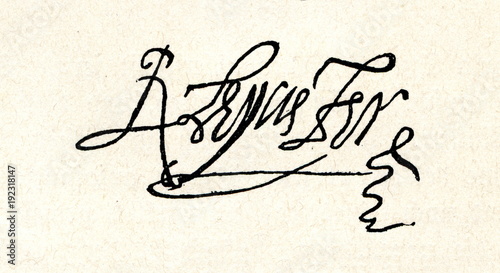 R Leycester
Adobe Stock | #192318147